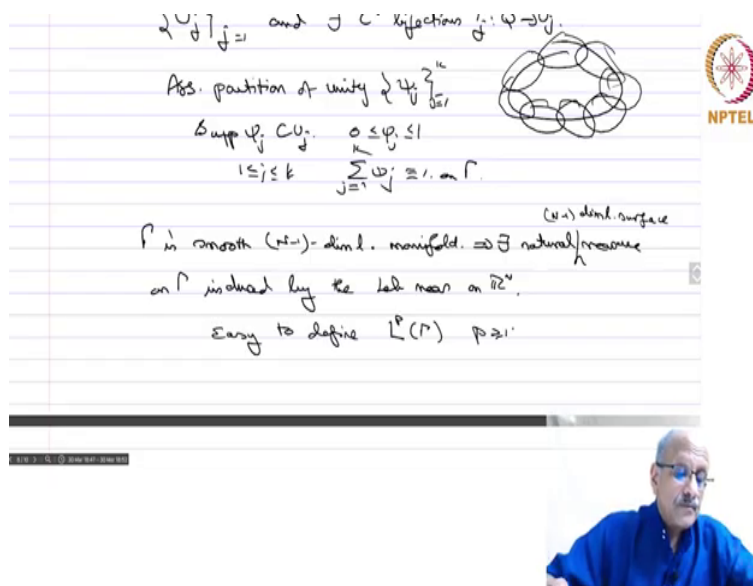 {U_j}_{j=1} and ∃ C bijections T_j : Q → U_j.
Ass. partition of unity {ψ_j}_{j=1}^k
Supp ψ_j ⊂ U_j. 0 ≤ ψ_j ≤ 1
1 ≤ j ≤ k Σ_{j=1}^k ψ_j ≡ 1. on Γ.
(N-1) diml. surface
Γ is smooth (N-1)-diml. manifold. ⇒ ∃ natural measure
on Γ induced by the Leb meas on ℝ^N.
Easy to define L^p(Γ) p ≥ 1.
NPTEL